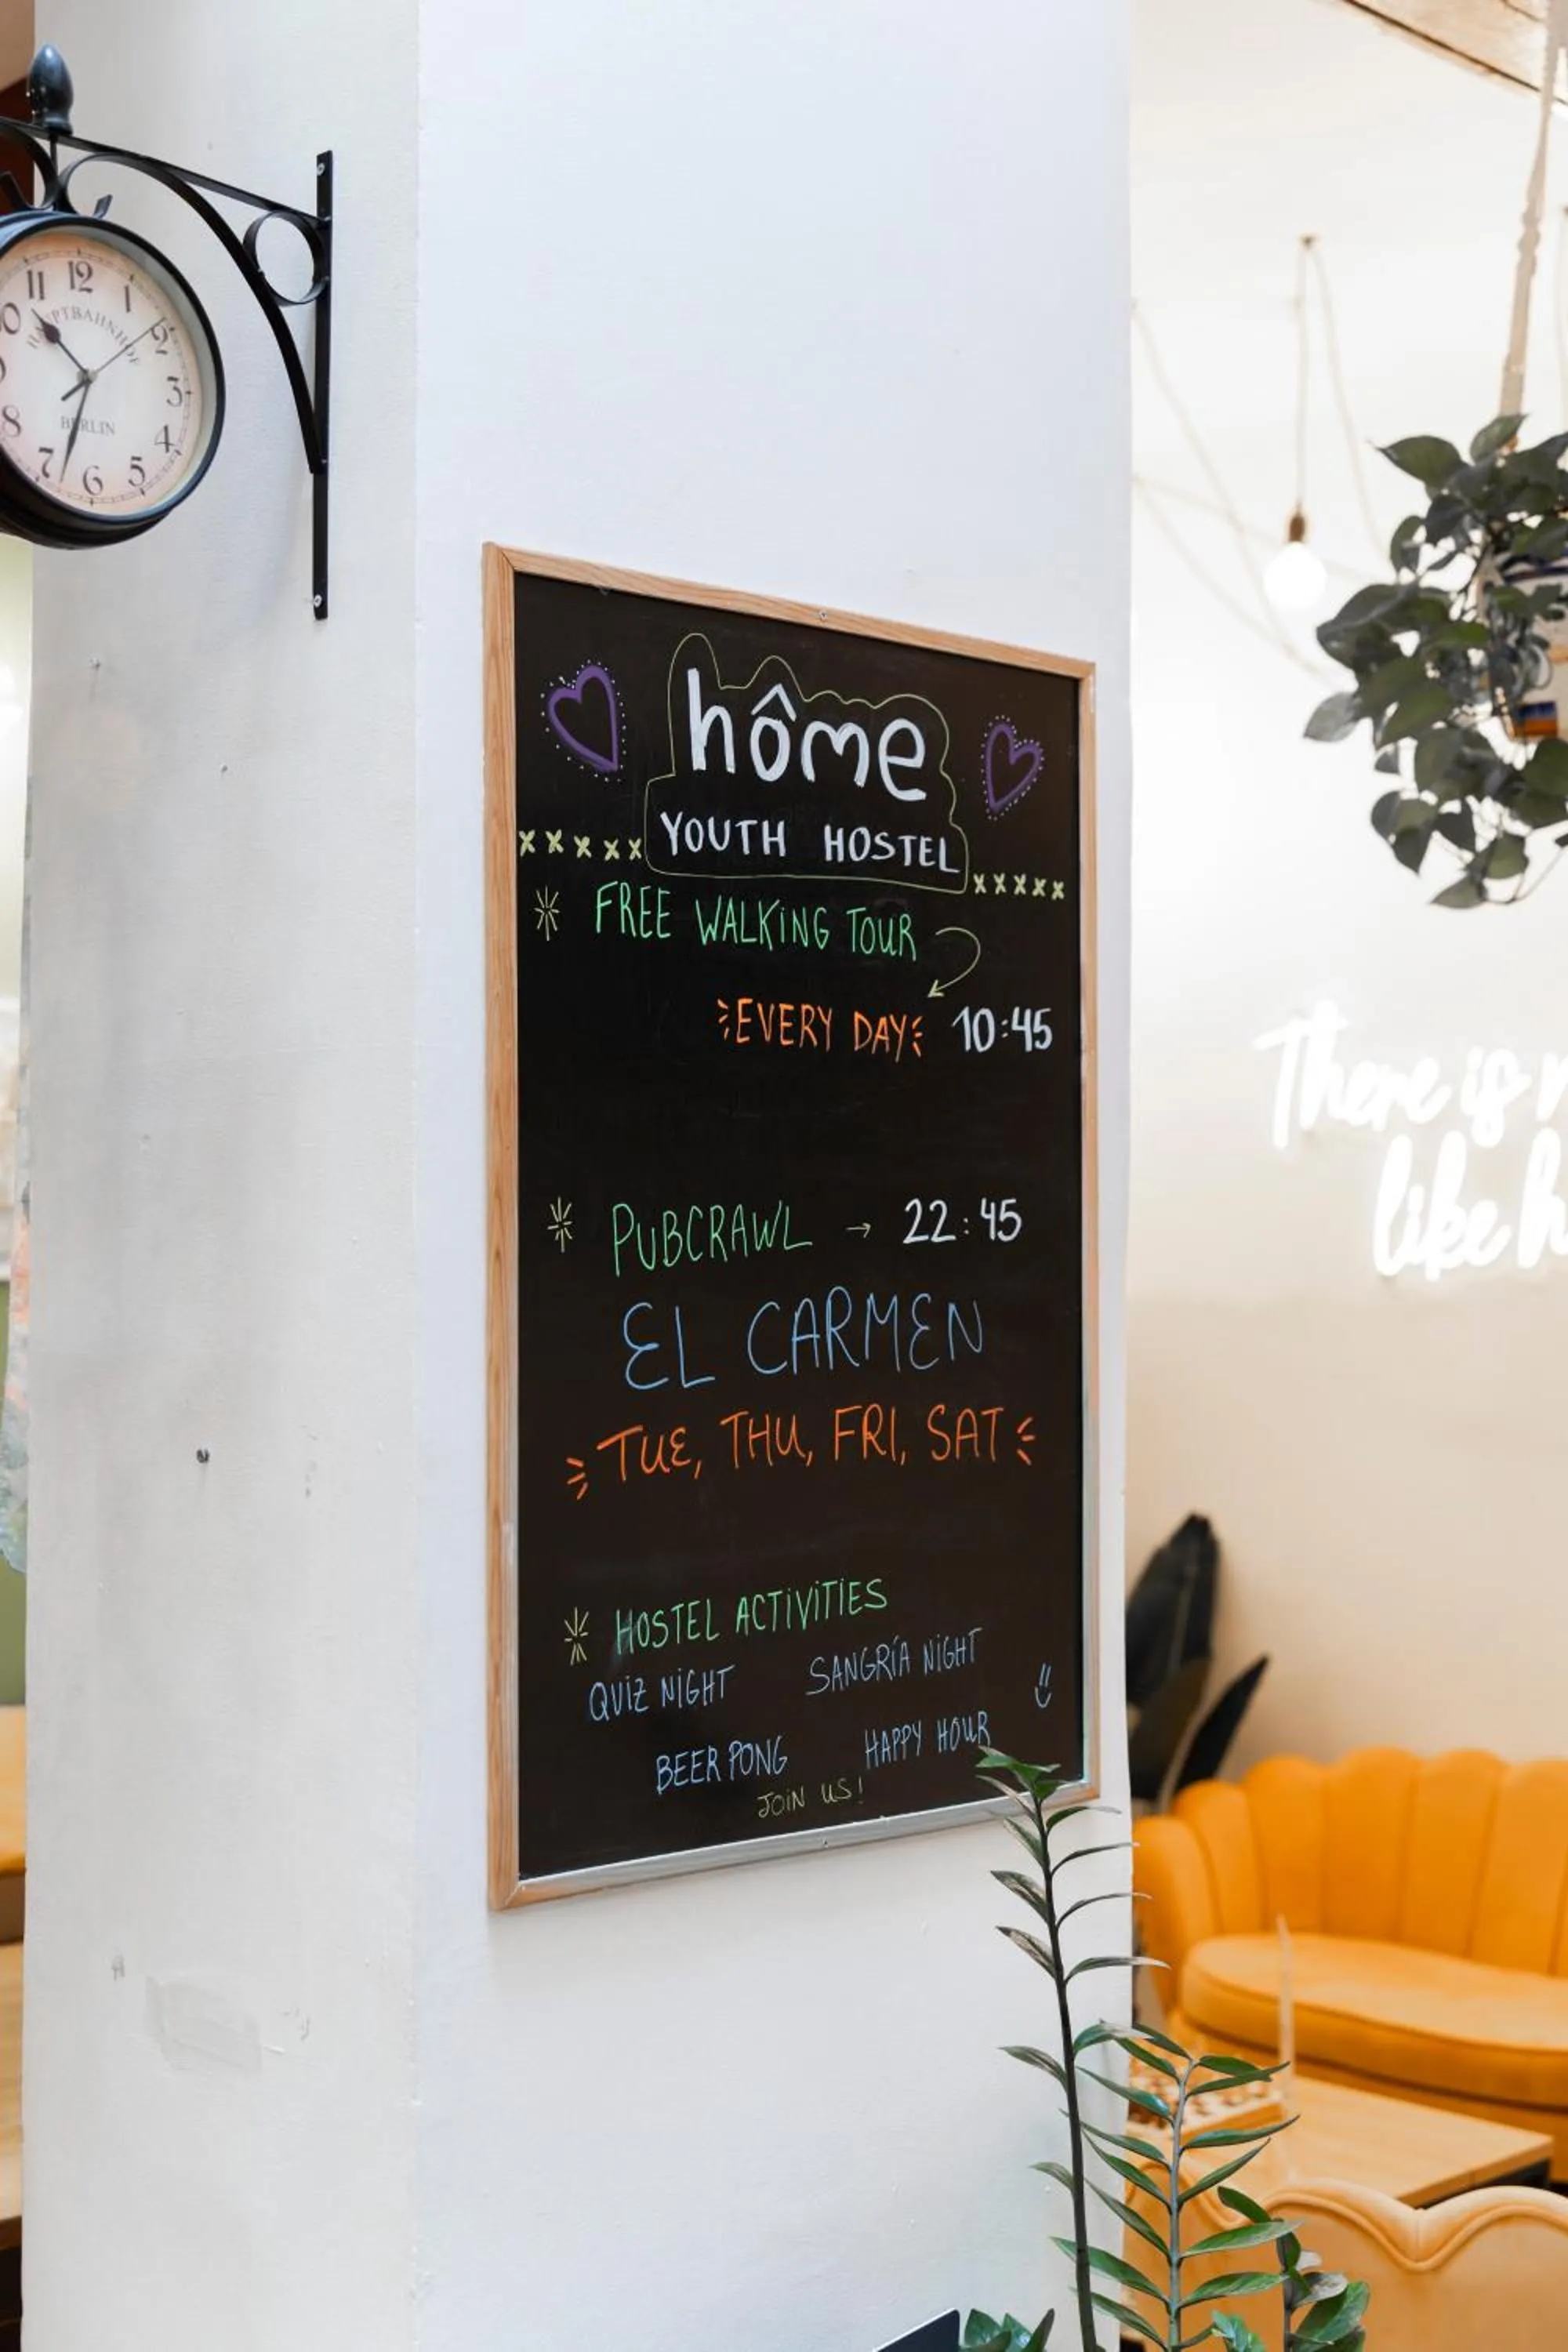 11 12 1
2
3
4
5
6
7
8
HAUPTBAHNHOF
BERLIN
hôme
YOUTH HOSTEL
FREE WALKING TOUR
EVERY DAY 10:45
PUBCRAWL → 22:45
EL CARMEN
TUE, THU, FRI, SAT
HOSTEL ACTIVITIES
QUIZ NIGHT SANGRÍA NIGHT
BEER PONG HAPPY HOUR
JOIN US!
There is
like